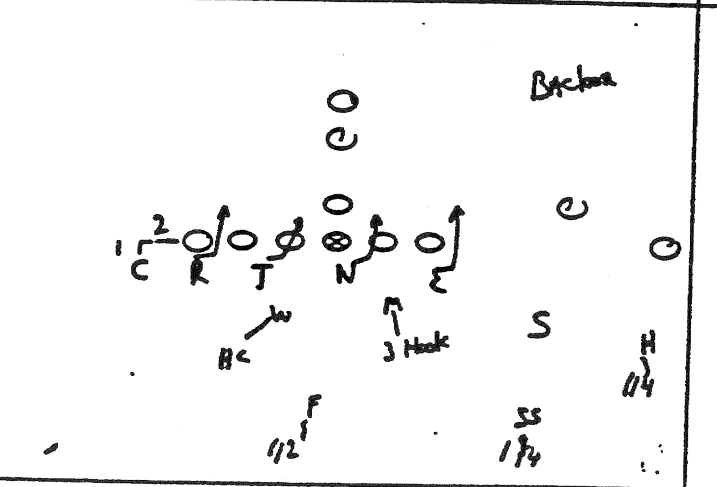 BACKDOOR
1 2
C R T N E
W M
S
HC 3 Hook H
1/4
F SS
1/2 1/4